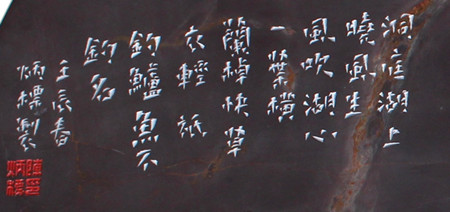 洞庭湖上
曉風生
風吹湖心
一葉橫
蘭棹快草
衣輕祇
釣鱸魚不
釣名
壬辰春
炳標製